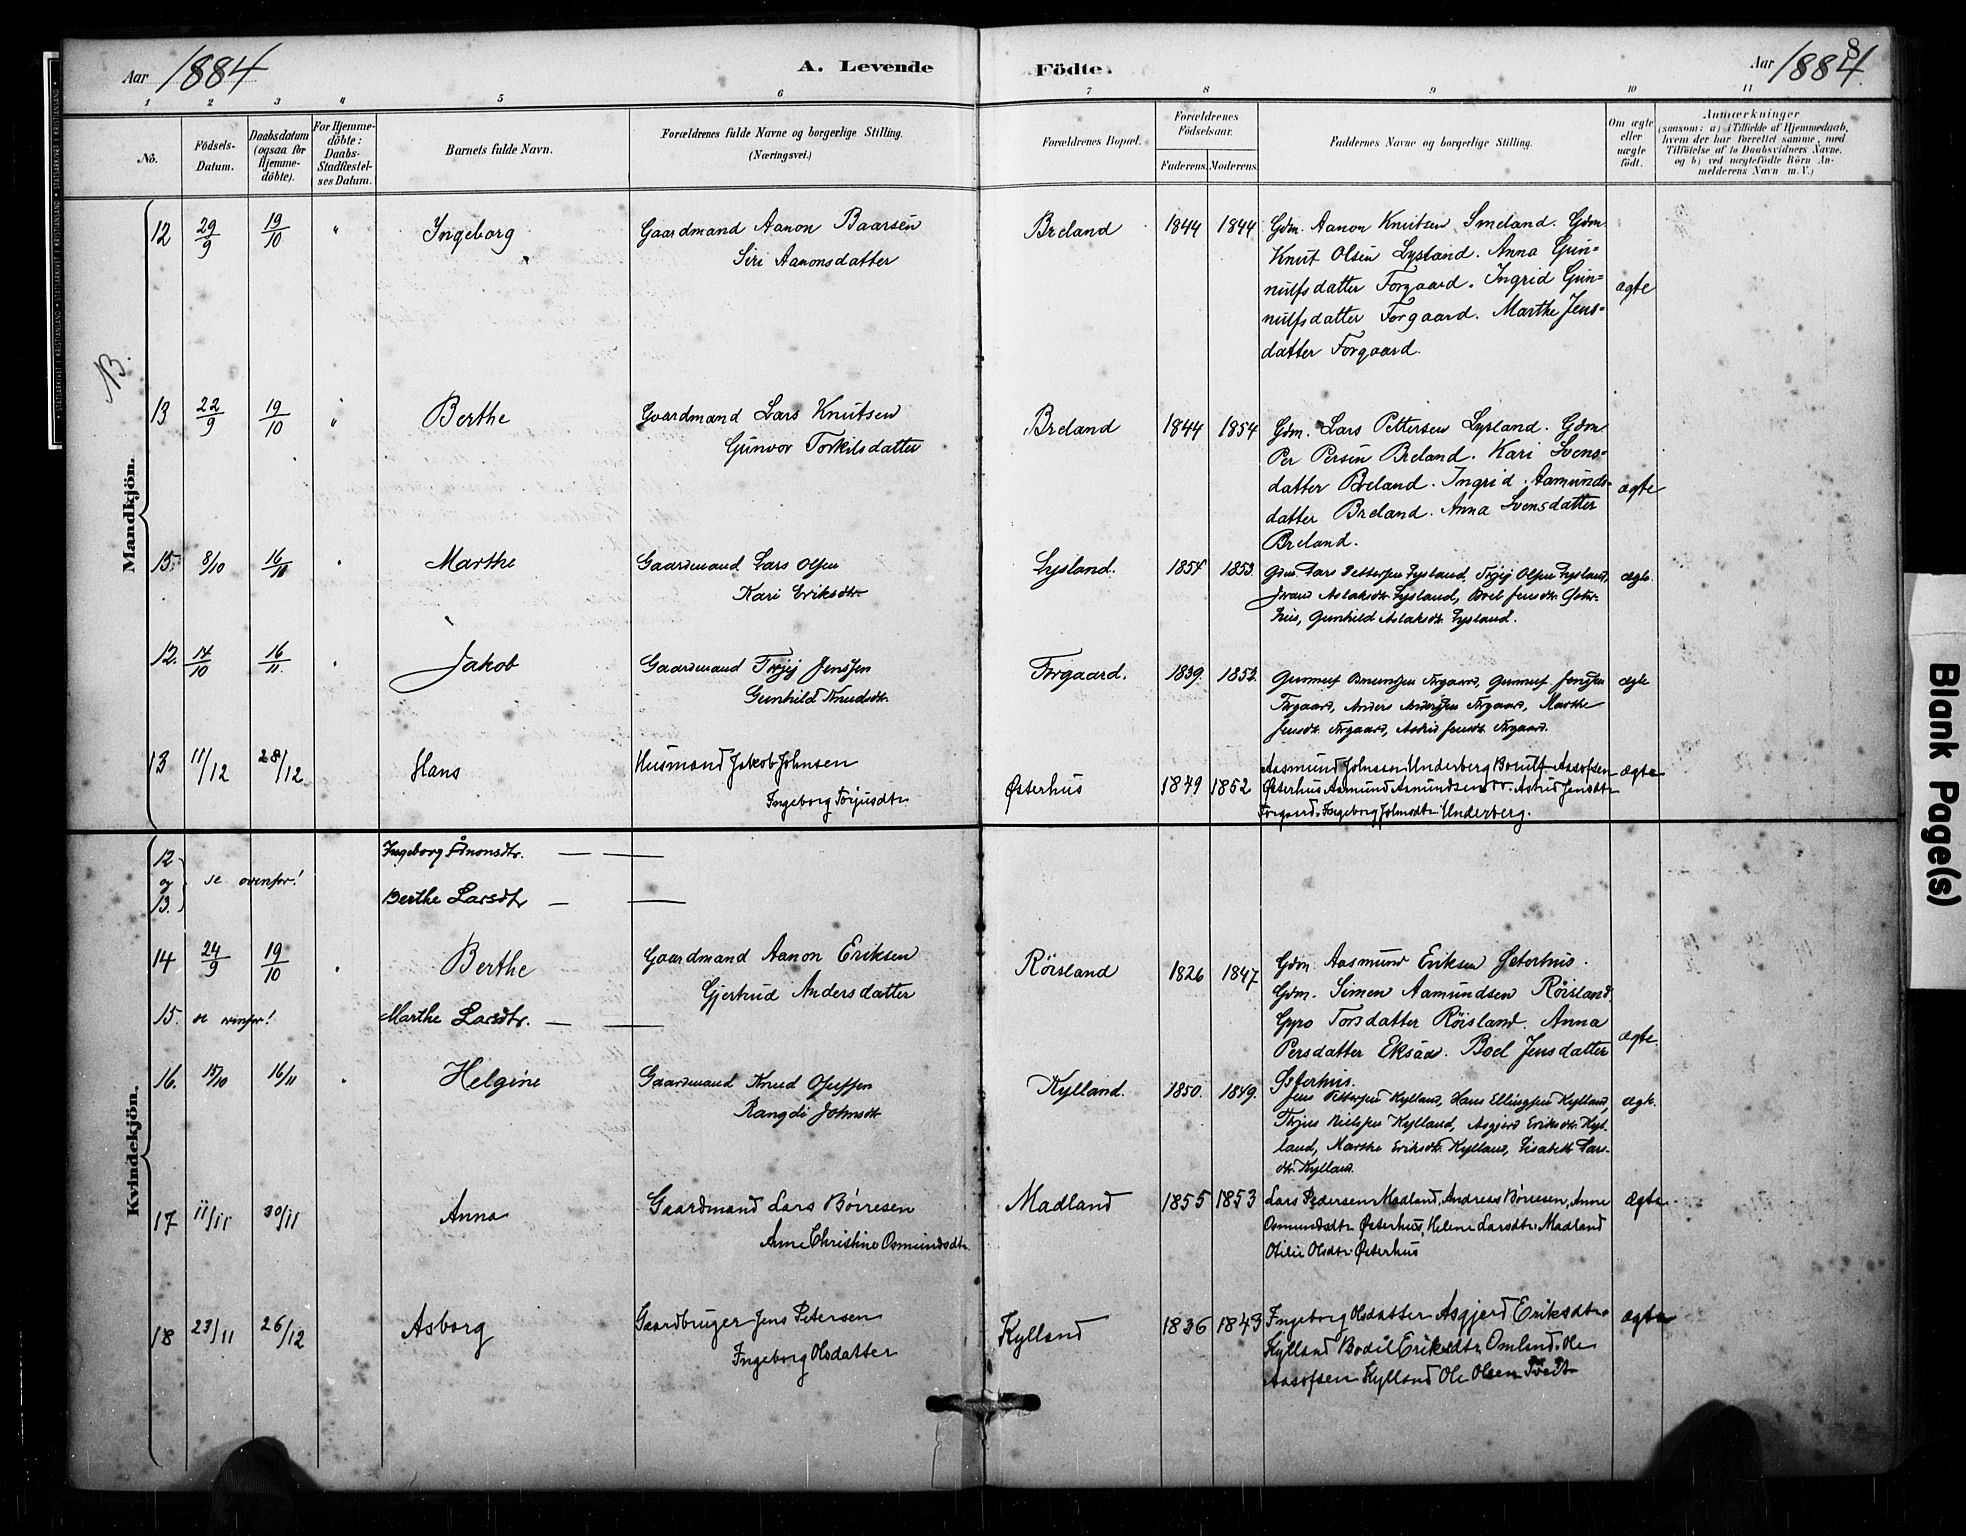 Aar 1884 A. Levende Födte. Aar 1884.
8
1 2 3 4 5 6 7 8 9 10 11
No.
Födsels-Datum.
Daabsdatum (ogsaa for Hjemme-döbte).
For Hjemme-döbte: Daabs-Stadfæstel-ses Datum.
Barnets fulde Navn.
Forældrenes fulde Navne og borgerlige Stilling. (Næringsvei.)
Forældrenes Bopæl.
Forældrenes Födselsaar.
Faderens. Moderens.
Faddernes Navne og borgerlige Stilling.
Om ægte eller uægte födt.
Anmærkninger
(saasom: a) i Tilfælde af Hjemmedaab,
hvem der har forrettet samme, med
Tilföielse af to Daabsvidners Navne.
og b) ved uægtefödte Börn An-
melderens Navn m. V.)
Mandkjön.
NB.
12 29/9 19/10 " Ingeborg Gaardmand Aanon Baarsen Breland 1844 1844 Gdm. Aanon Knutsen Smeland. Gdm
Siri Aanonsdatter Knut Olsen Lysland. Anna Gun=
nulfsdatter Forgaard. Ingrid Gun= ægte
nulfsdatter Forgaard. Marthe Jens=
datter Forgaard.
13 22/9 19/10 " Berthe Gaardmand Lars Knutsen Breland 1844 1854 Gdm. Lars Pettersen Lysland. Gdm
Gunvor Torkilsdatter Per Persen Breland. Kari Svens=
datter Breland. Ingrid Aamunds= ægte
datter Breland. Anna Svensdatter
Breland.
15. 8/10 16/11 " Marthe Gaardmand Lars Olsen Lysland. 1854 1853. Gdm. Lars Pettersen Lysland, Terjej Olsen Lysland, ægte.
Kari Eriksdtr. Aslaksdtr. Lysland, Boel Jensdtr. Øster-
hus, Gunhild Aslaksdtr. Lysland.
12. 14/10 16/11. " Jakob Gaardmand Terjej Jenssen Forgaard. 1839. 1852. Gunnulf Forgaard, Gunnulf Jenssen ægte
Gunhild Knudsdtr. Forgaard, Anders Forgaard, Marthe
Jensdtr. Forgaard, Astrid Jensdtr. Forgaard.
13 11/12 28/12 Hans Husmand Jakob Johnsen Østerhus 1849 1852 Aasmund Johnsen Underberg Aasofsen ægte
Ingeborg Terjusdtr Østerhus Aamund Aamundsen Astrid Jensdtr
Forgaard. Ingeborg Johnsdtr. Underberg.
Kvindekjön.
12 Ingeborg Ånonsdtr. — —
og se ovenfor!
13. Berthe Larsdtr — —
14 24/9 19/10 " Berthe Gaardmand Aanon Eriksen Röisland 1826 1847 Gdm. Aasmund Eriksen Østerhus.
Gjertrud Andersdatter Gdm. Simen Aamundsen Röisland
15. se ovenfor! Marthe Larsdtr. — — Gyro Torsdatter Röisland. Anna
Persdatter Eksaa. Boel Jensdatter ægte.
Østerhus.
16. 15/10 16/11 " Helgine Gaardmand Knud Olufsen Kylland. 1850. 1849. Jens Pettersen Kylland, Hans Ellingsen Kylland, ægte.
Rangdi Johnsdtr Terjus Nielsen Kylland, Asgjerd Eriksdtr. Kyl-
land, Marthe Eriksdtr. Kylland, Elisabeth Lars-
dtr. Kylland.
17 11/11 30/11 Anna Gaardmand Lars Börresen Madland 1855 1853 Lars Pedersen Madland, Andreas Börresen, Anne ægte
Anne Christine Osmundsdtr. Osmundsdtr. Østerhus, Helene Larsdtr. Madland
Otilie Olsdtr. Østerhus
18 23/11 26/12 Asborg Gaardbruger Jens Petersen Kylland 1836 1843 Ingeborg Olsdatter Asgjerd Eriksdtr. ægte
Ingeborg Olsdatter Kylland Bodil Eriksdtr. Omland. Ole
Aasofsen Kylland Ole Olsen Tveit
Blank Page(s)
STATSARKIVET I KRISTIANSAND • STATSARKIVET I KRISTIANSAND • STATSARKIVET I KRISTIANSAND